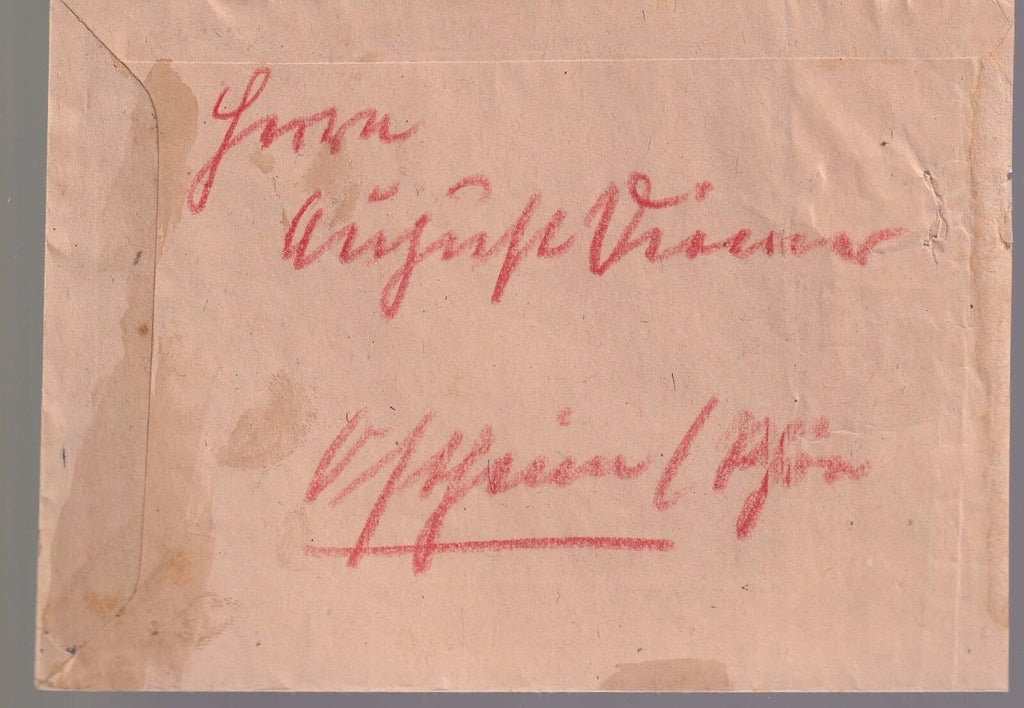 Herrn
August Diemer
Ostheim / Rhön